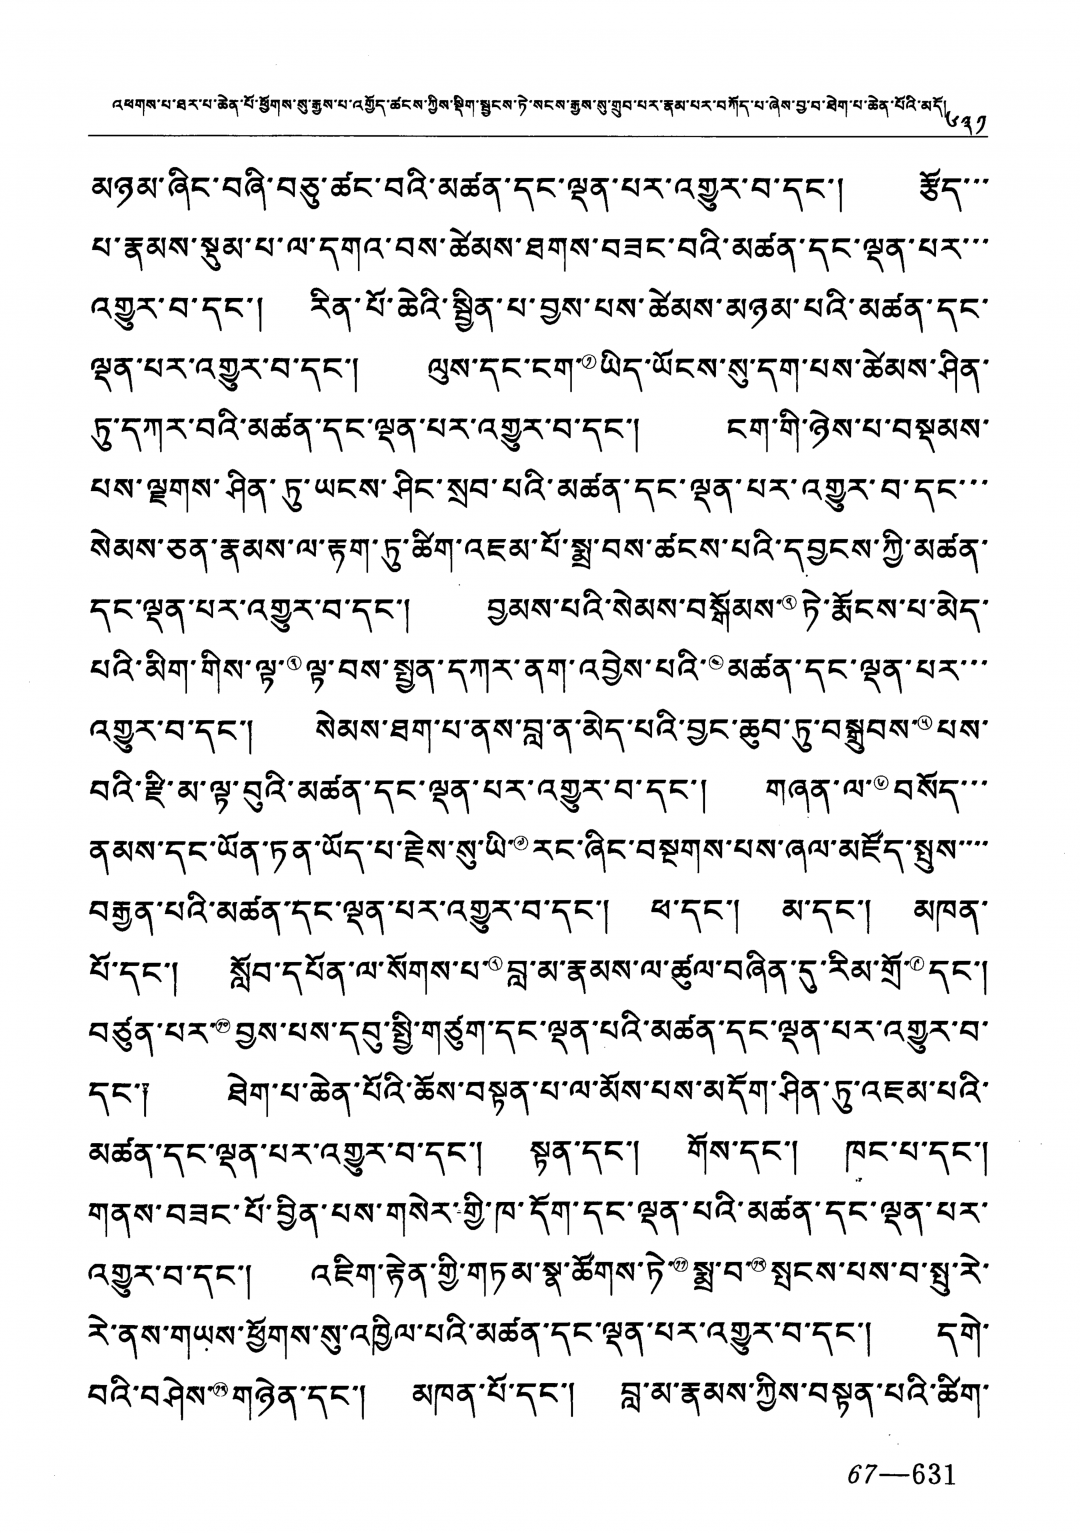 འཕགས་པ་ཐར་པ་ཆེན་པོ་ཕྱོགས་སུ་རྒྱས་པ་འགྱོད་ཚངས་ཀྱིས་སྡིག་སྦྱངས་ཏེ་སངས་རྒྱས་སུ་གྲུབ་པར་རྣམ་པར་བཀོད་པ་ཞེས་བྱ་བ་ཐེག་པ་ཆེན་པོའི་མདོ། ༦༣༡
མཉམ་ཞིང་བཞི་བཅུ་ཚང་བའི་མཚན་དང་ལྡན་པར་འགྱུར་བ་དང་། རྩོད་
པ་རྣམས་སྡུམ་པ་ལ་དགའ་བས་ཚེམས་ཐགས་བཟང་བའི་མཚན་དང་ལྡན་པར་
འགྱུར་བ་དང་། རིན་པོ་ཆེའི་སྦྱིན་པ་བྱས་པས་ཚེམས་མཉམ་པའི་མཚན་དང་
ལྡན་པར་འགྱུར་བ་དང་། ལུས་དང་ངག་①ཡིད་ཡོངས་སུ་དག་པས་ཚེམས་ཤིན་
ཏུ་དཀར་བའི་མཚན་དང་ལྡན་པར་འགྱུར་བ་དང་། ངག་གི་ཉེས་པ་བསྡམས་
པས་ལྗགས་ཤིན་ཏུ་ཡངས་ཤིང་སྲབ་པའི་མཚན་དང་ལྡན་པར་འགྱུར་བ་དང་
སེམས་ཅན་རྣམས་ལ་རྟག་ཏུ་ཚིག་འཇམ་པོ་སྨྲ་བས་ཚངས་པའི་དབྱངས་ཀྱི་མཚན་
དང་ལྡན་པར་འགྱུར་བ་དང་། བྱམས་པའི་སེམས་བསྒོམས་②ཏེ་རྨོངས་པ་མེད་
པའི་མིག་གིས་ལྟ་③ལྟ་བས་སྤྱན་དཀར་ནག་འབྱེས་པའི་④མཚན་དང་ལྡན་པར་
འགྱུར་བ་དང་། སེམས་ཐག་པ་ནས་བླ་ན་མེད་པའི་བྱང་ཆུབ་ཏུ་བསྒྲུབས་⑤པས་
བའི་རྫི་མ་ལྟ་བུའི་མཚན་དང་ལྡན་པར་འགྱུར་བ་དང་། གཞན་ལ་⑥བསོད་
ནམས་དང་ཡོན་ཏན་ཡོད་པ་རྗེས་སུ་ཡི་⑦རང་ཞིང་བསྔགས་པས་ཞལ་མཛོད་སྤུས་
བརྒྱན་པའི་མཚན་དང་ལྡན་པར་འགྱུར་བ་དང་། ཕ་དང་། མ་དང་། མཁན་
པོ་དང་། སློབ་དཔོན་ལ་སོགས་པ་⑧བླ་མ་རྣམས་ལ་ཚུལ་བཞིན་དུ་རིམ་གྲོ་⑨དང་།
བཙུན་པར་⑩བྱས་པས་དབུ་སྤྱི་གཙུག་དང་ལྡན་པའི་མཚན་དང་ལྡན་པར་འགྱུར་བ་
དང་། ཐེག་པ་ཆེན་པོའི་ཆོས་བསྟན་པ་ལ་མོས་པས་མདོག་ཤིན་ཏུ་འཇམ་པའི་
མཚན་དང་ལྡན་པར་འགྱུར་བ་དང་། སྟན་དང་། གོས་དང་། ཁང་པ་དང་།
གནས་བཟང་པོ་བྱིན་པས་གསེར་གྱི་ཁ་དོག་དང་ལྡན་པའི་མཚན་དང་ལྡན་པར་
འགྱུར་བ་དང་། འཇིག་རྟེན་གྱི་གཏམ་སྣ་ཚོགས་ཏེ་⑪སྨྲ་བ་⑫སྤངས་པས་བ་སྤུ་རེ་
རེ་ནས་གཡས་ཕྱོགས་སུ་འཁྱིལ་པའི་མཚན་དང་ལྡན་པར་འགྱུར་བ་དང་། དགེ་
བའི་བཤེས་⑬གཉེན་དང་། མཁན་པོ་དང་། བླ་མ་རྣམས་ཀྱིས་བསྟན་པའི་ཚིག་
67—631